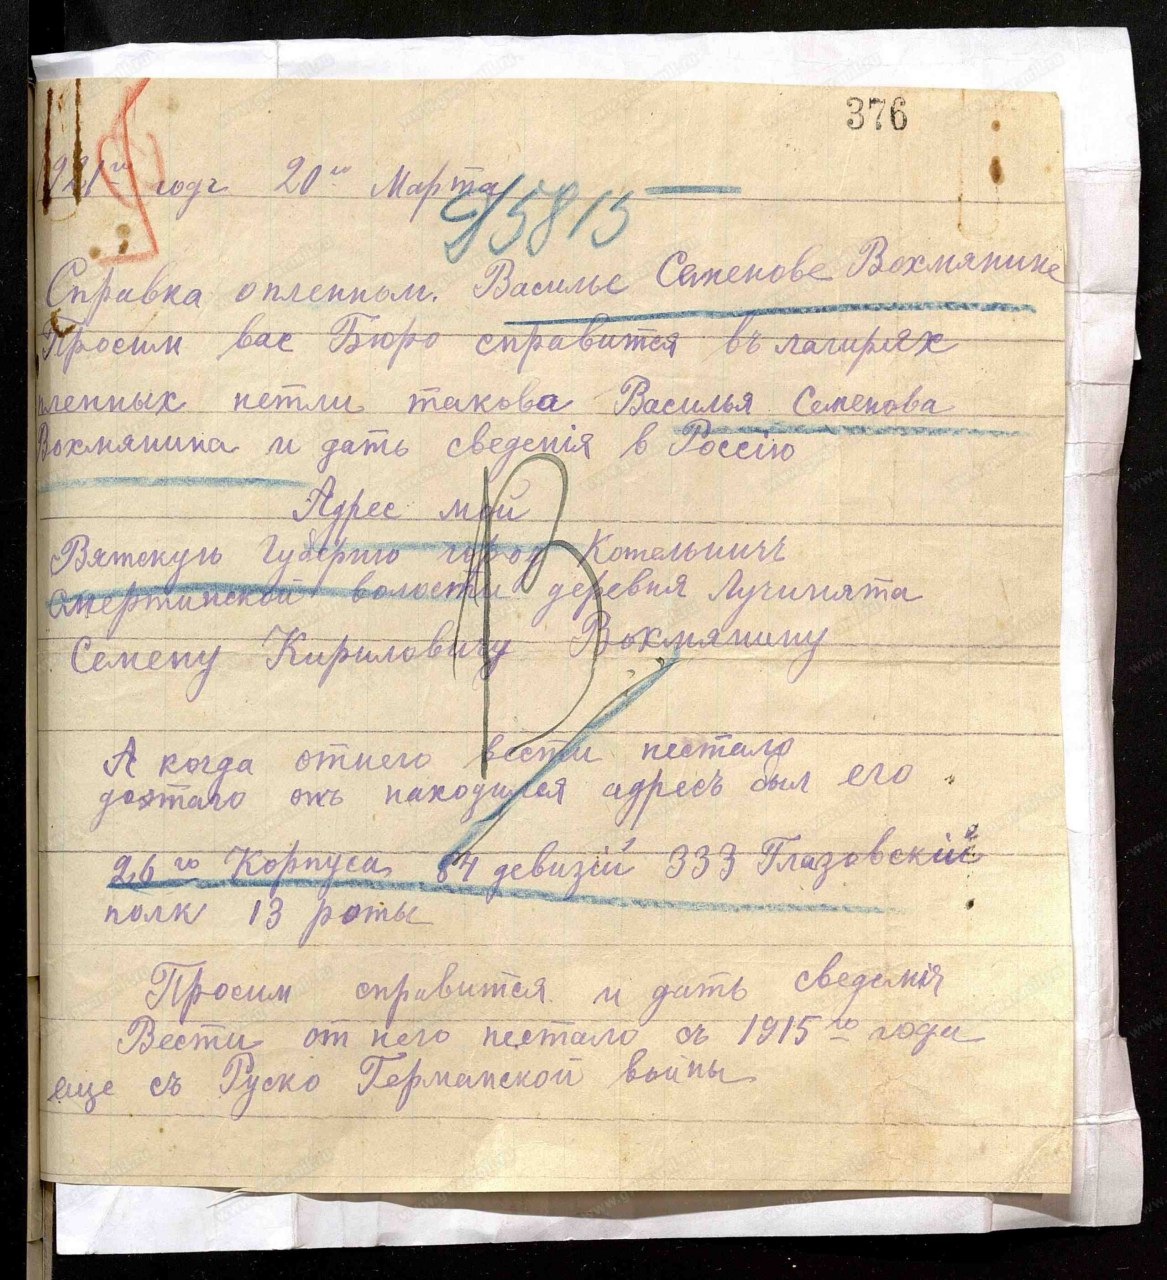 376
1921 го годъ 20 го Марта
95815
Справка о пленном. Василье Семенове Вохмянине
Просим вас Бюро справится въ лагирях
пленных нетли такова Василья Семенова
Вохмянина и дать сведенія в Россію
Адрес мой
Вятскую Губерню город Котельничъ
Смертинской волости деревня Лучинята
Семену Кириловичу Вохмянину
В
А когда отнего вести нестало
дотаго онъ находился адресъ был его
26 го Корпуса 84 девизій 333 Глазовскій
полк 13 роты
Просим справится и дать сведенія
Вести от него нестало съ 1915 го года
еще съ Руско Германской войны